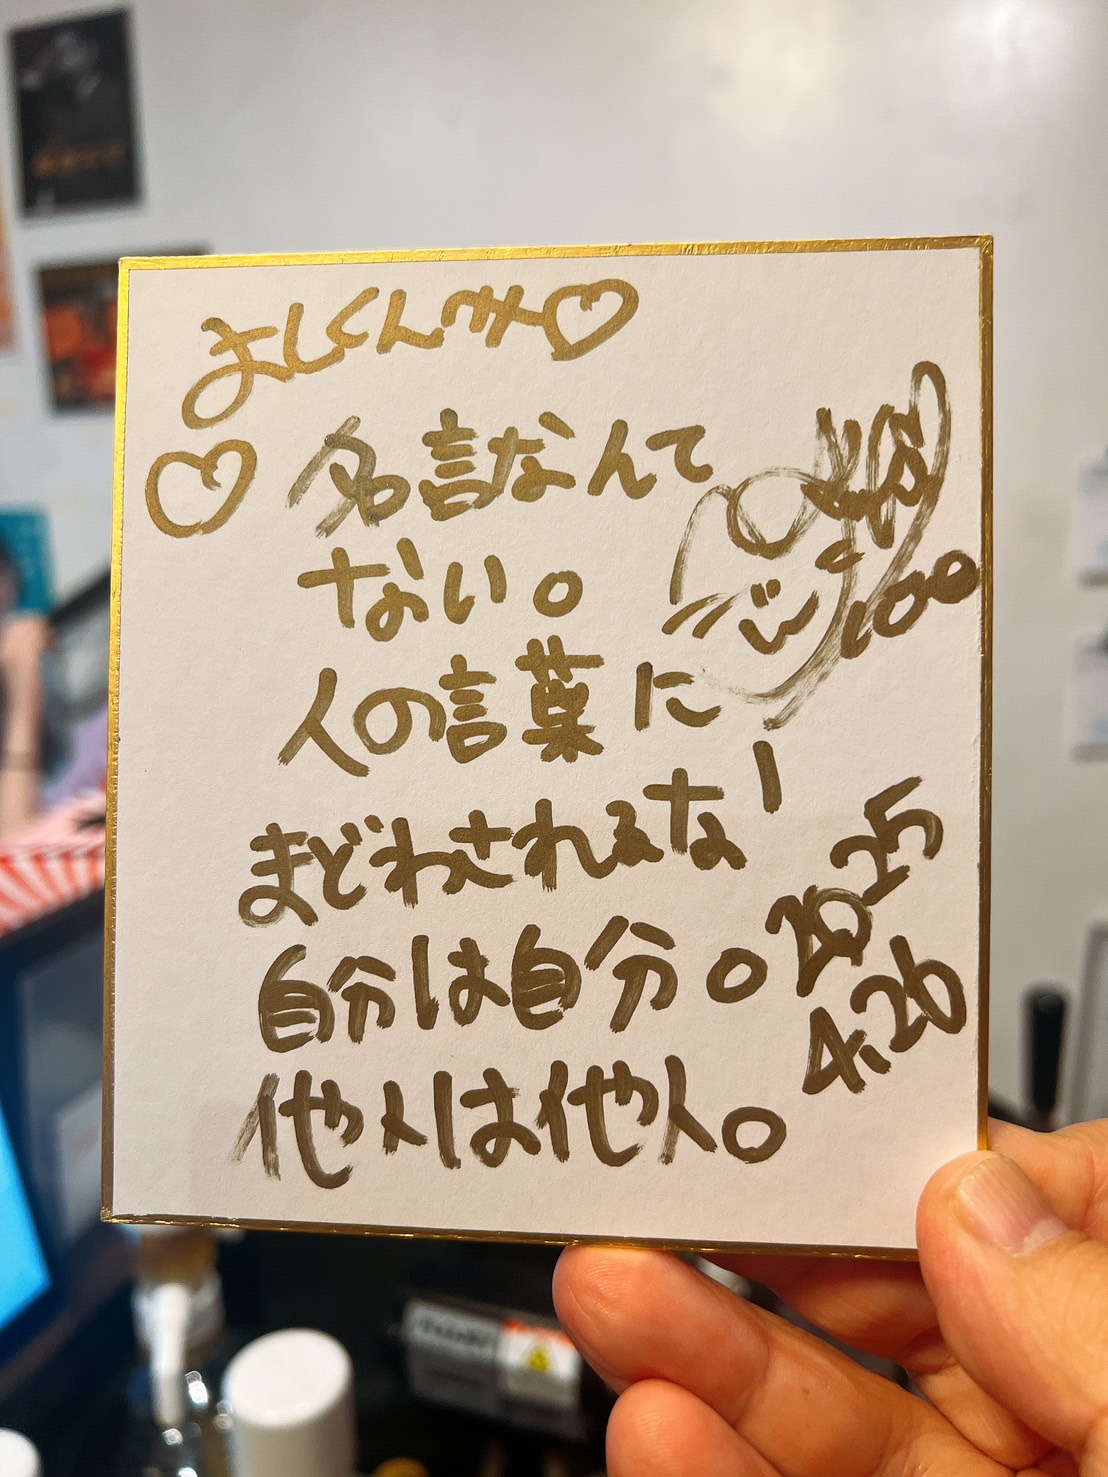 よしくんへ♡
♡
名言なんて
ない。
人の言葉に
まどわされるな!
自分は自分。
他人は他人。
2025
4,26